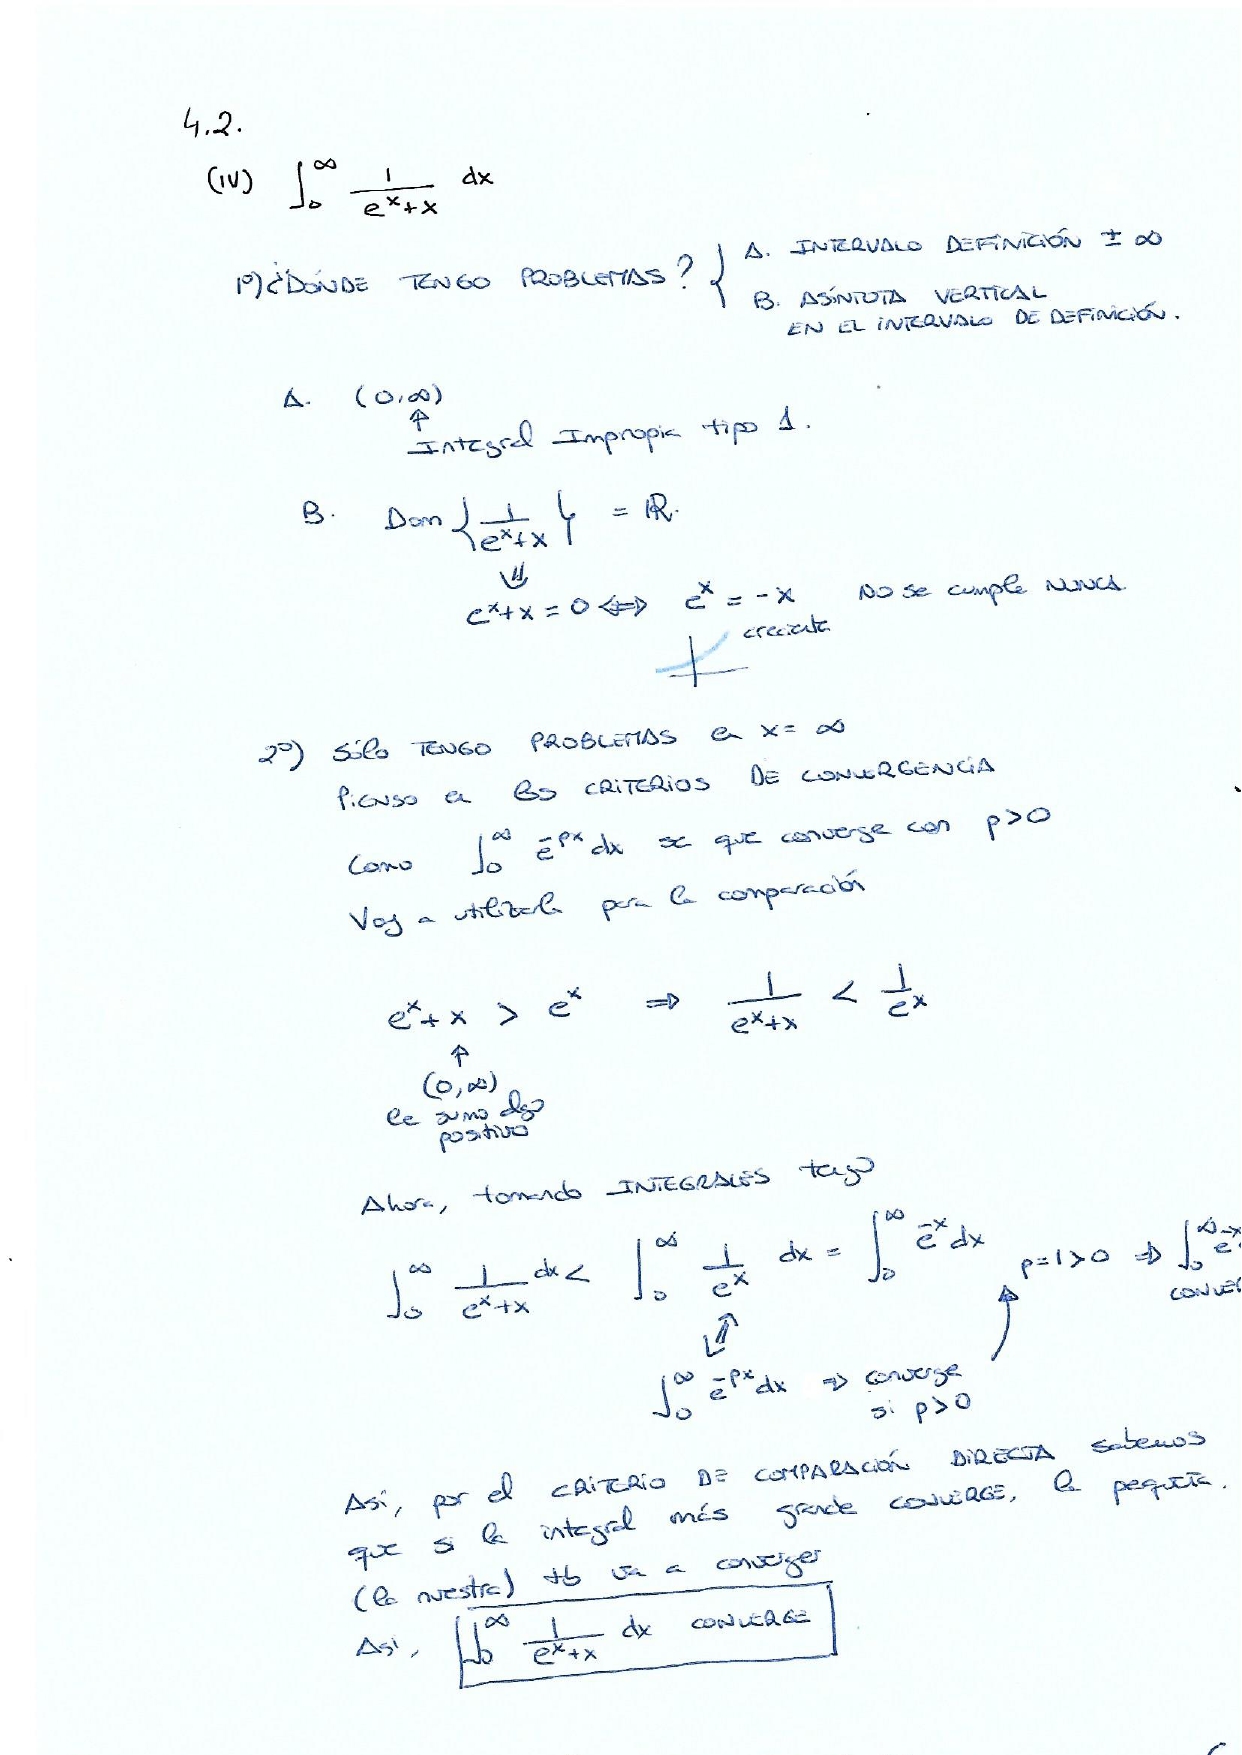 4.2.
(IV) ∫₀^∞ 1/(eˣ+x) dx
1º) ¿DÓNDE TENGO PROBLEMAS? { A. INTERVALO DEFINICIÓN ± ∞
B. ASÍNTOTA VERTICAL
EN EL INTERVALO DE DEFINICIÓN.
A. (0,∞)
↑
Integral Impropia tipo 1.
B. Dom {1/(eˣ+x)} = ℝ.
⇓
eˣ+x = 0 ⇔ eˣ = -x No se cumple NUNCA.
creciente
2º) Sólo TENGO PROBLEMAS en x = ∞
Pienso en los CRITERIOS DE CONVERGENCIA
Como ∫₀^∞ e^(-px) dx se que converge con p>0
Voy a utilizarla para la comparación
eˣ+x > eˣ ⇒ 1/(eˣ+x) < 1/eˣ
↑
(0,∞)
le sumo algo
positivo
Ahora, tomando INTEGRALES tengo
∫₀^∞ 1/(eˣ+x) dx < ∫₀^∞ 1/eˣ dx = ∫₀^∞ e^(-x) dx p=1>0 ⇒ ∫₀^∞ e^(-x)
CONVER
∫₀^∞ e^(-px) dx ⇒ converge
si p>0
Así, por el CRITERIO DE COMPARACIÓN DIRECTA sabemos
que si la integral más grande CONVERGE, la pequeña.
(la nuestra) tb va a converger
Así, ∫₀^∞ 1/(eˣ+x) dx CONVERGE